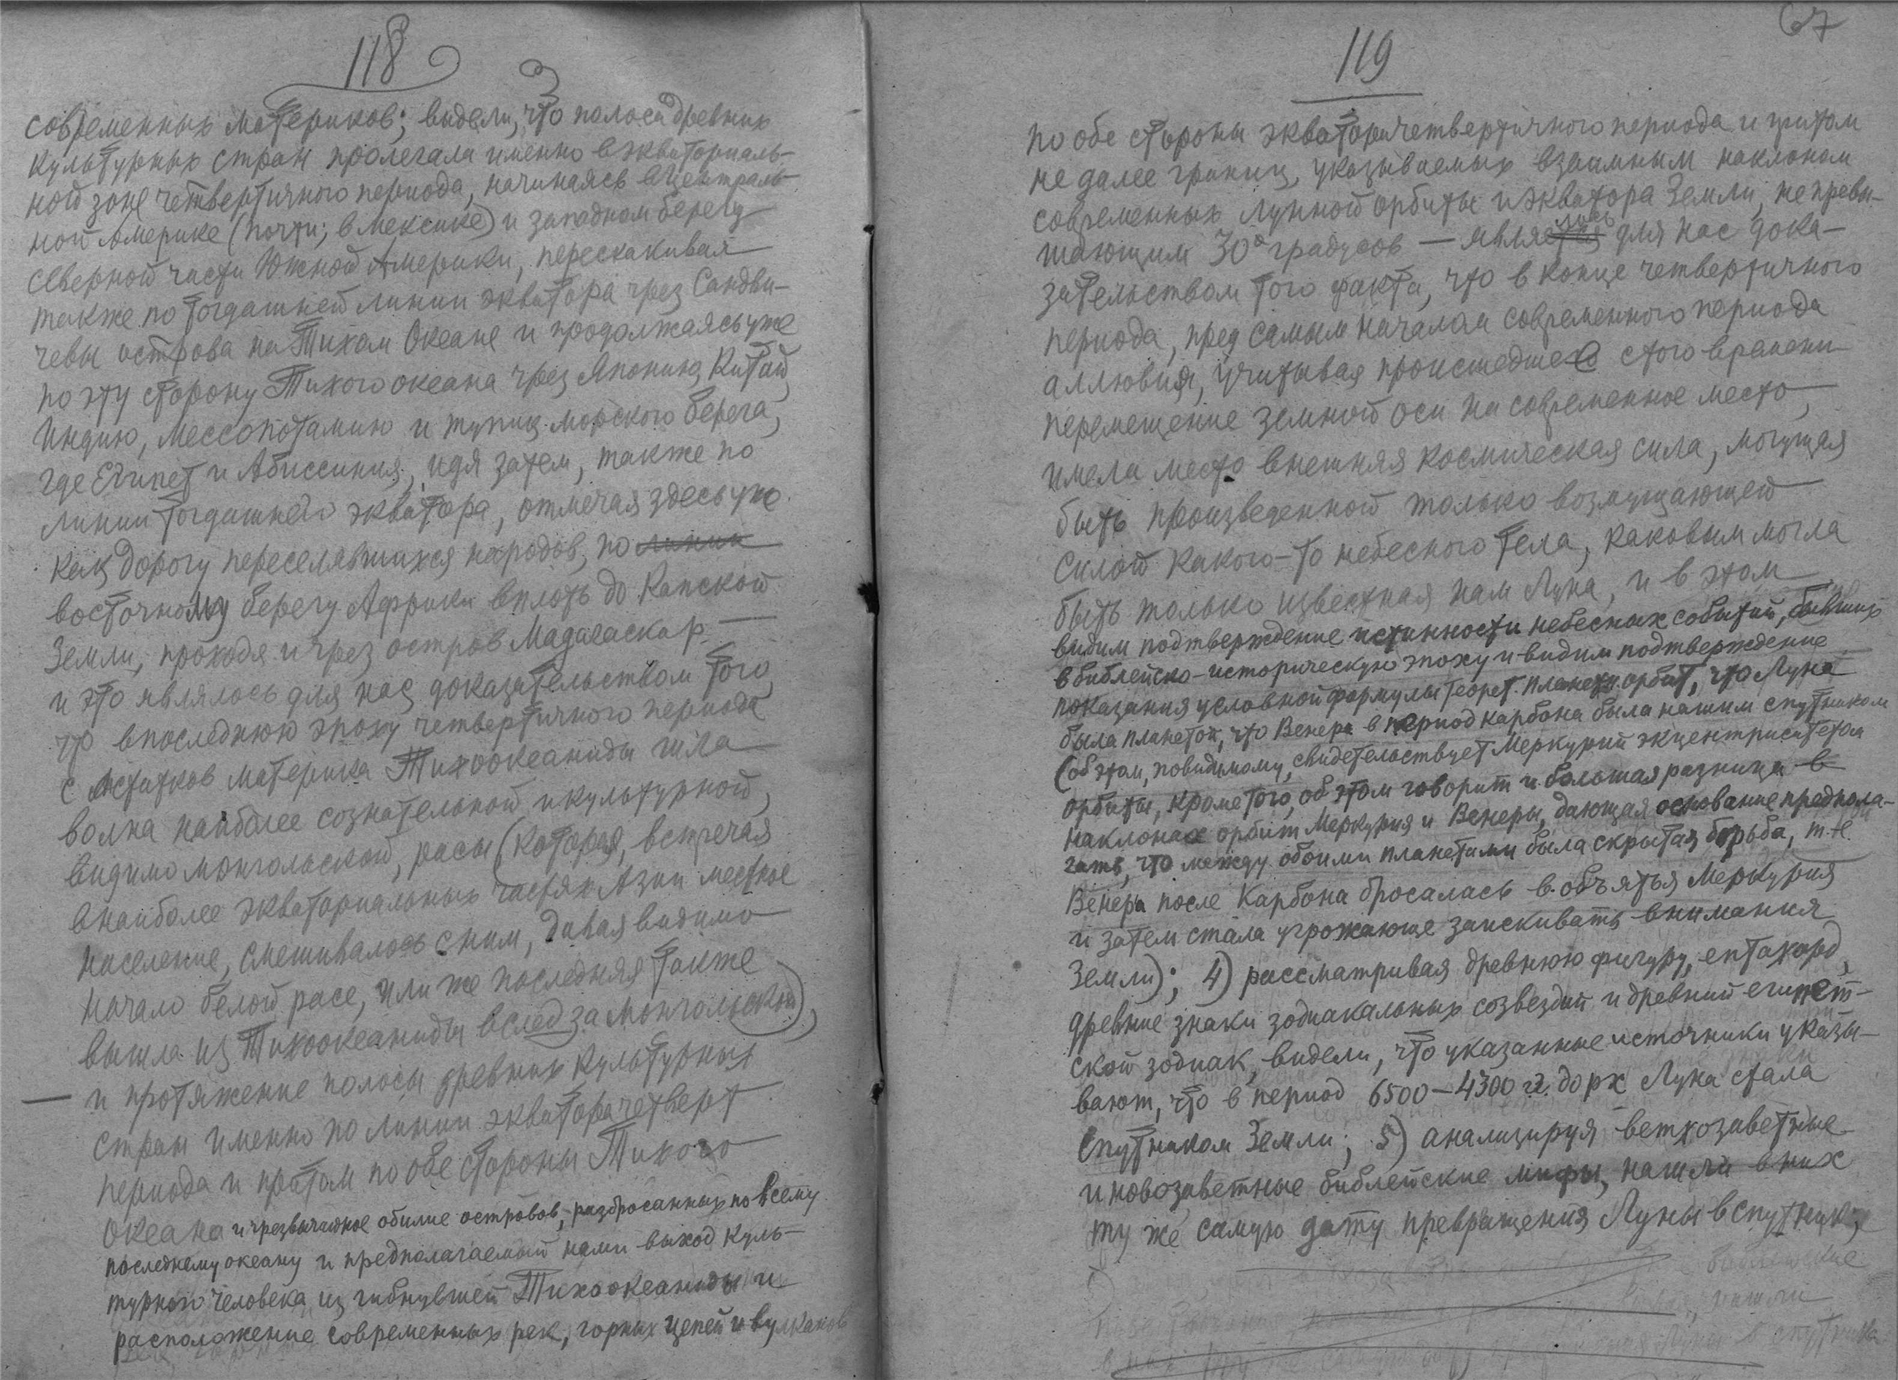 118
современных материков; видели, что полоса древних
культурных стран пролегала именно в экваториаль-
ной зоне четвертичного периода, начинаясь в Централь-
ной Америке (почти; в Мексике) и западном берегу
северной части Южной Америки, перескакивая
также по тогдашней линии экватора чрез Сандви-
чевы острова на Тихом Океане и продолжаясь уже
по эту сторону Тихого океана чрез Японию, Китай,
Индию, Мессопотамию и тупик морского берега,
где Египет и Абиссиния, идя затем, также по
линии тогдашнего экватора, отмечая здесь уже
как дорогу переселявшихся народов, по линии
восточному берегу Африки вплоть до Капской
Земли, проходя и чрез остров Мадагаскар —
и это являлось для нас доказательством того,
что в последнюю эпоху четвертичного периода
с остатков материка Тихоокеаниды шла
волна наиболее сознательной и культурной,
видимо монгольской, расы (которая, встречая
в наиболее экваториальных частях Азии местное
население, смешивалось с ним, давая видимо
начало белой расе, или же последняя также
вышла из Тихоокеаниды вслед за монгольской),
— и протяжение полосы древних культурных
стран именно по линии экватора четверт.
периода и притом по обе стороны Тихого
океана и чрезвычайное обилие островов, разбросанных по всему
последнему океану и предполагаемый нами выход куль-
турного человека из гибнувшей Тихоокеаниды и
расположение современных рек, горных цепей и вулканов
67
119
по обе стороны экватора четвертичного периода и притом
не далее границ, указываемых взаимным наклоном
современных лунной орбиты и экватора Земли, не превы-
шающим 30° градусов — являлись для нас дока-
зательством того факта, что в конце четвертичного
периода, пред самым началом современного периода
аллювия, учитывая происшедшее с того времени
перемещение земной оси на современное место,
имела место внешняя космическая сила, могущая
быть произведенной только возмущающей
силой какого-то небесного тела, каковым могла
быть только известная нам Луна, и в этом
видим подтверждение истинности небесных событий, бывших
в библейско-историческую эпоху и видим подтверждение
показания условной формулы теорет. планетн. орбит, что Луна
была планетой, что Венера в период карбона была нашим спутником
(об этом, повидимому, свидетельствует Меркурий эксцентриситетом
орбиты, кроме того, об этом говорит и большая разница в
наклонах орбит Меркурия и Венеры, дающая основание предпола-
гать, что между обоими планетами была скрытая борьба, т.-е.
Венера после Карбона бросалась в объятья Меркурия
и затем стала угрожающе заискивать внимания
Земли); 4) рассматривая древнюю фигуру, ептахорд,
древние знаки зодиакальных созвездий и древний египет-
ской зодиак, видели, что указанные источники указы-
вают, что в период 6500—4300 гг. до рх Луна стала
спутником Земли; 5) анализируя ветхозаветные
и новозаветные библейские мифы, нашли в них
ту же самую дату превращения Луны в спутник;